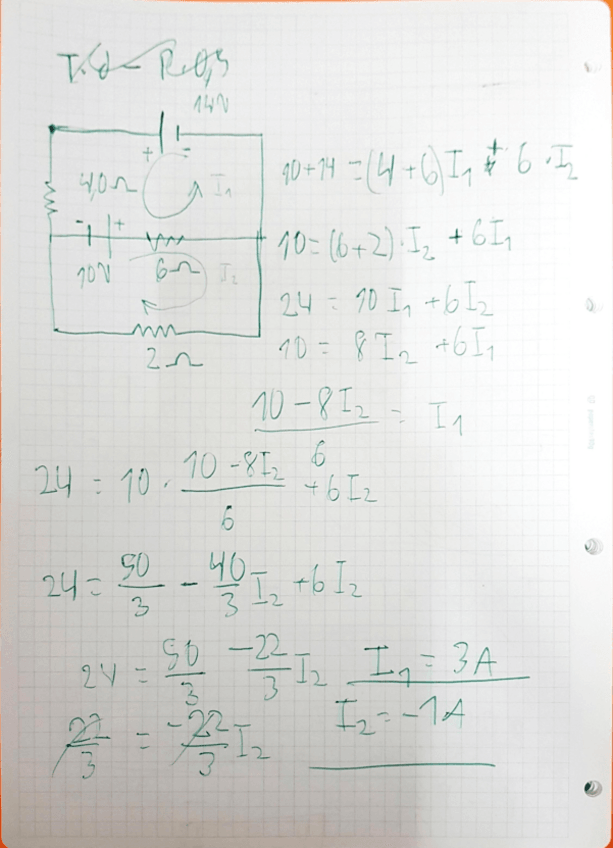 14V
+ -
4,0Ω I₁
- +
10V 6Ω I₂
2Ω
10+14 = (4+6)I₁ + 6·I₂
10 = (6+2)·I₂ + 6I₁
24 = 10I₁ + 6I₂
10 = 8I₂ + 6I₁
(10 - 8I₂)/6 = I₁
24 = 10 · (10 - 8I₂)/6 + 6I₂
24 = 50/3 - 40/3 I₂ + 6I₂
24 = 50/3 -22/3 I₂
22/3 = -22/3 I₂
I₁ = 3A
I₂ = -1A